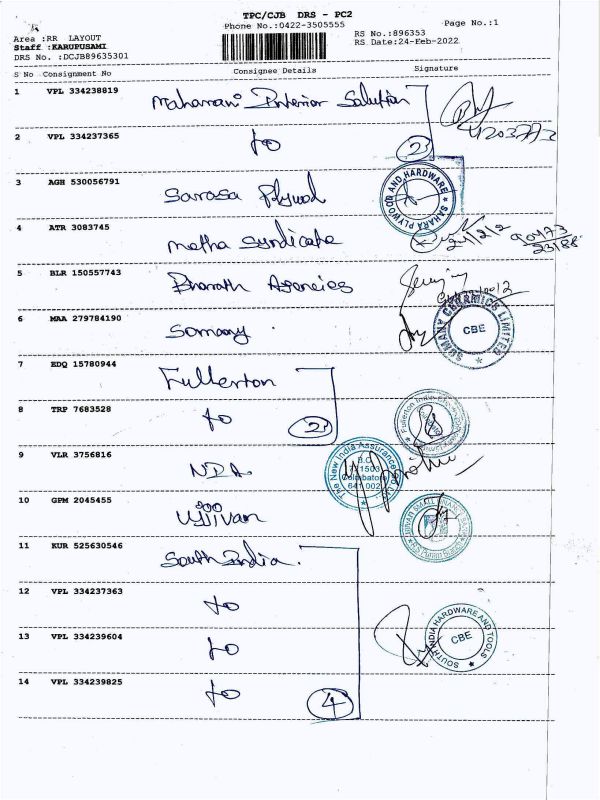 TPC/CJB DRS - PC2
Phone No.:0422-3505555
Page No.:1
Area :RR LAYOUT
Staff :KARUPUSAMI
DRS No. :DCJB89635301
RS No.:896353
RS Date:24-Feb-2022
S No Consignment No Consignee Details Signature
1 VPL 334238819 Maharani Interior Solution
2 VPL 334237365 to 2
3 AGH 530056791 Sarasa Plywood
SAHARA PLYWOOD AND HARDWARE
4 ATR 3083745 metha Syndicate
5 BLR 150557743 Bharath Agencies
6 MAA 279784190 Somany
SOMANY CERAMICS LIMITED
CBE
7 EDQ 15780944 Fullerton
8 TRP 7683528 to 2
Fullerton India
9 VLR 3756816 NIA
The New India Assurance
641 002
10 GPM 2045455 Ujjivan
UJJIVAN SMALL FINANCE BANK
11 KUR 525630546 South India.
12 VPL 334237363 to
13 VPL 334239604 to
SOUTH INDIA HARDWARE AND TOOLS
CBE
14 VPL 334239825 to 4